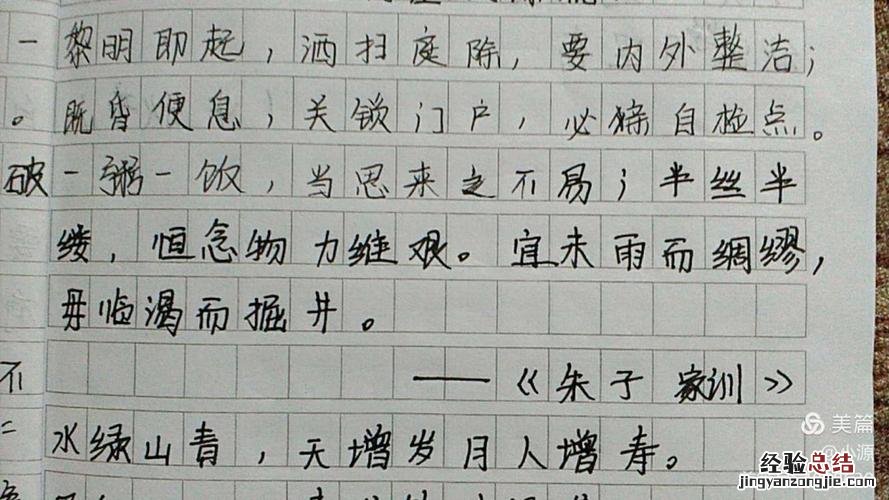 一黎明即起，洒扫庭除，要内外整洁；
。既昏便息，关锁门户，必亲自检点。
破一粥一饭，当思来之不易；半丝半
缕，恒念物力维艰。宜未雨而绸缪，
毋临渴而掘井。
不
——《朱子家训》
二
水绿山青，天增岁月人增寿。
美篇
@小源
经验总结
jingyanzongjie.com